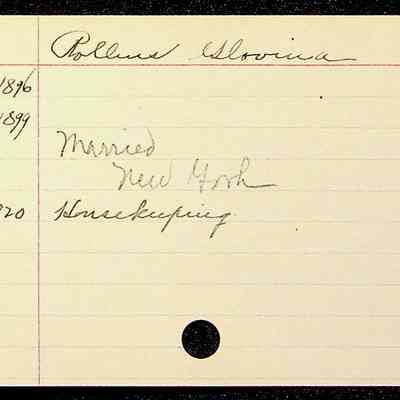 Rollins Glovina
1896
1899
Married
New York
920 Housekeeping